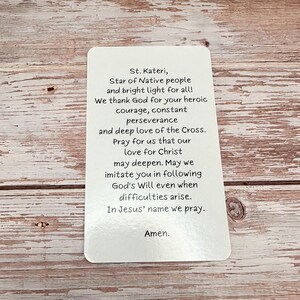 St. Kateri,
Star of Native people
and bright light for all!
We thank God for your heroic
courage, constant
perseverance
and deep love of the Cross.
Pray for us that our
love for Christ
may deepen. May we
imitate you in following
God's Will even when
difficulties arise.
In Jesus' name we pray.
Amen.